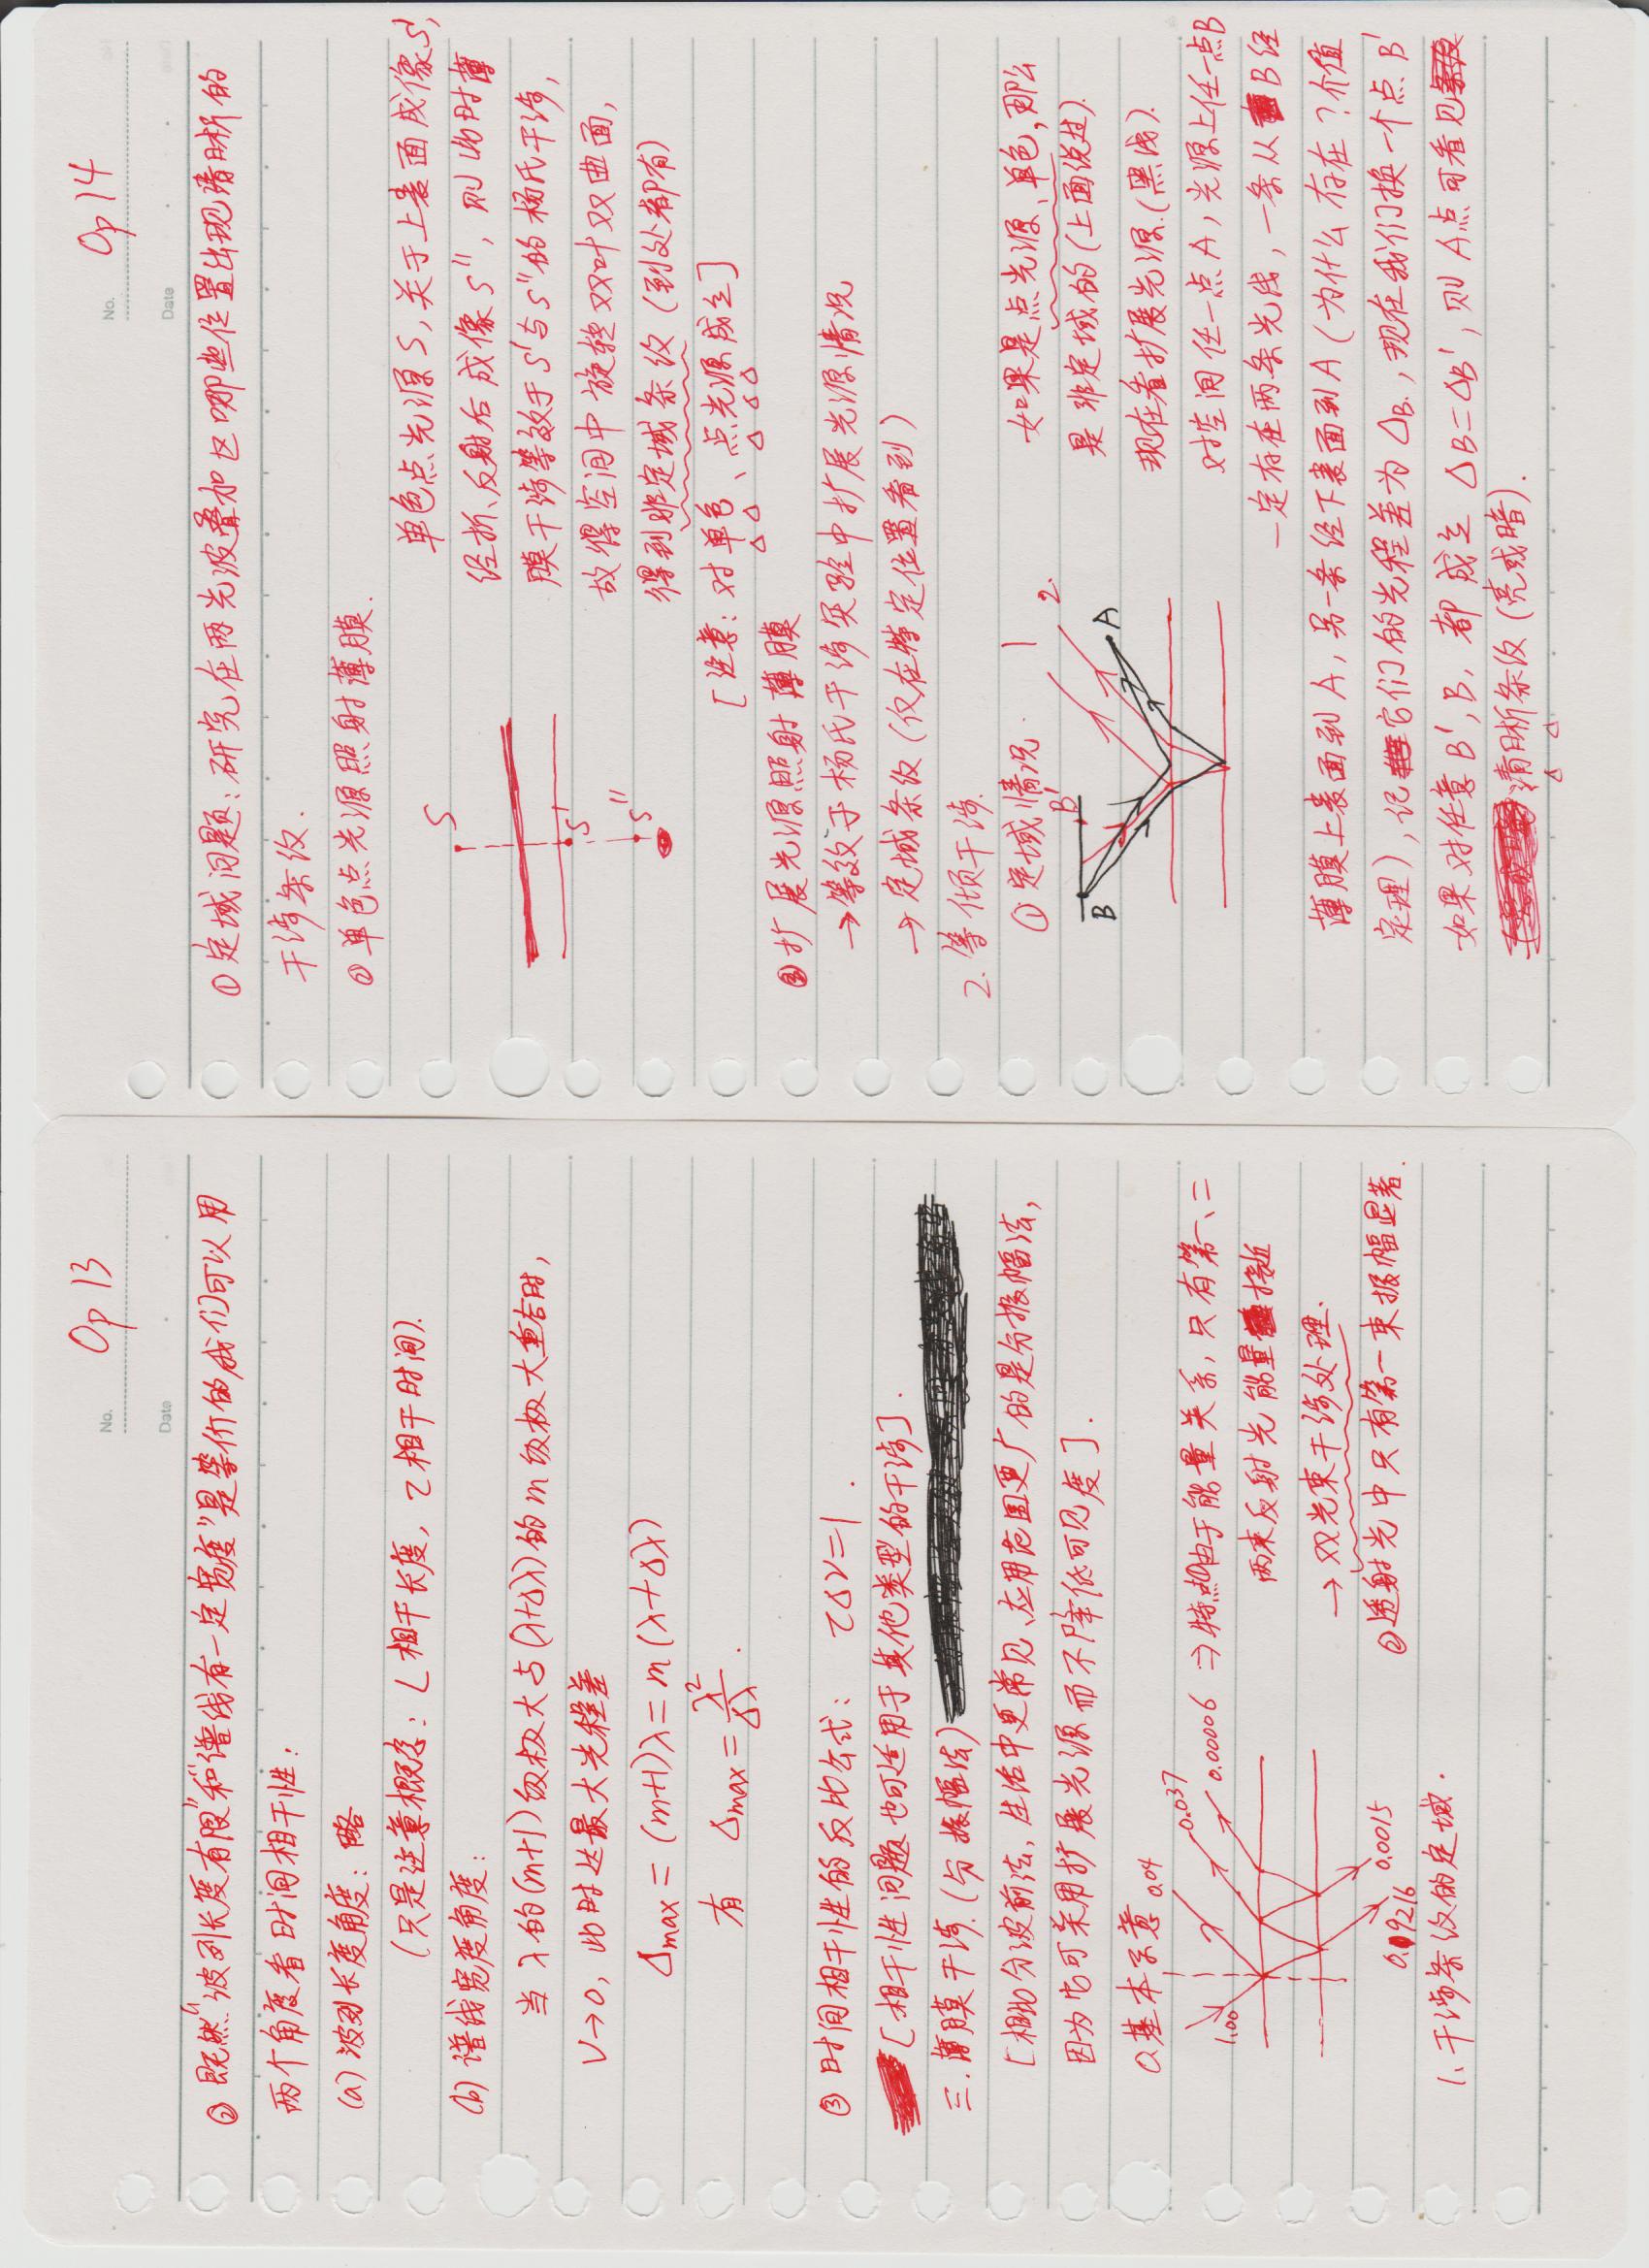 No. Op 13
Date
② 既然"波列长度有限"和"谱线有一定宽度"是等价的,我们可以用
两个角度看时间相干性:
(a) 波列长度角度: 略
(只是注意概念: L 相干长度, τ 相干时间).
(b) 谱线宽度角度:
当 λ 的 (m+1) 级极大与 (λ+Δλ) 的 m 级极大重合时,
V→0, 此时达最大光程差
Δmax = (m+1)λ = m(λ+Δλ)
有 Δmax = λ²/Δλ .
③ 时间相干性的反比公式: τΔν=1 .
[相干性问题也可适用于其他类型的干涉].
三. 薄膜干涉. (分振幅法)
[相比分波前法, 生活中更常见、应用范围更广的是分振幅法,
因为它可采用扩展光源而不降低可见度].
0. 基本示意
0.04
0.037
1.00
0.00006 ⇒ 特点①由于能量关系, 只有第一、二
两束反射光能量接近
→ 双光束干涉处理.
0.0015
②透射光中只有第一束振幅显著.
0.9216
1. 干涉条纹的定域.
No. Op 14
Date
① 定域问题: 研究在两光波叠加区哪些位置出现清晰的
干涉条纹.
② 单色点光源照射薄膜.
单色点光源 S, 关于上表面成像 S',
S
经折、反射后成像 S'', 则此时薄
膜干涉等效于 S' 与 S'' 的杨氏干涉,
S'
故得空间中旋转双叶双曲面,
S''
得到非定域条纹 (到处都有)
[注意: 对单色、点光源成立]
③ 扩展光源照射薄膜
→ 等效于杨氏干涉实验中扩展光源情况
→ 定域条纹 (仅在特定位置看到)
2. 等倾干涉.
① 定域情况.
1
2.
B'
B
A
如果是点光源、单色, 那么
是非定域的 (上面说过).
现在看扩展光源. (黑线).
对空间任一点 A, 光源上任一点 B
一定存在两条光线, 一条从 B 经
薄膜上表面到 A, 另一条经下表面到 A (为什么存在? 介值
定理), 记它们的光程差为 ΔB., 现在我们换一个点 B'
如果对任意 B', B, 都成立 ΔB=ΔB', 则 A 点可看见
清晰条纹 (亮或暗).